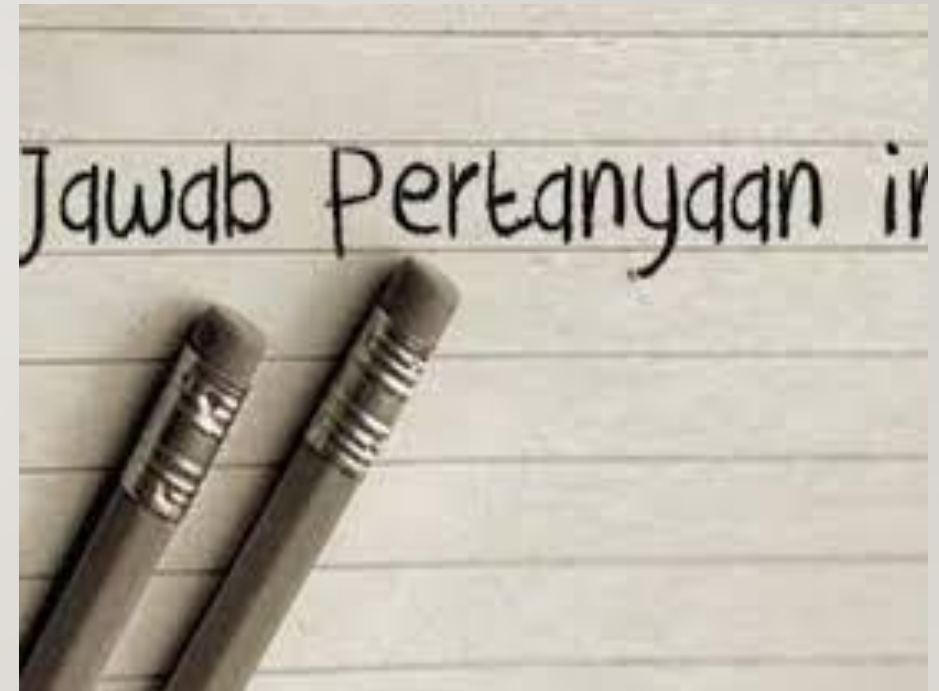 Jawab Pertanyaan